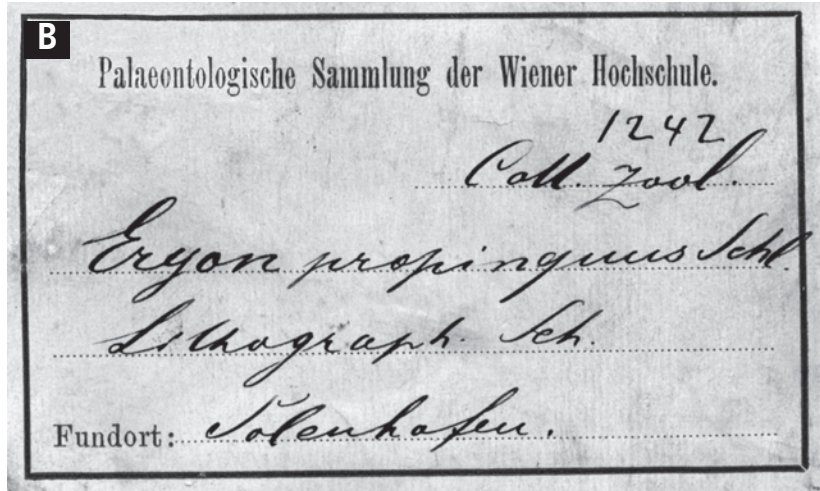 B
Palaeontologische Sammlung der Wiener Hochschule.
1242
Coll. Zool.
Eryon propinquus Schl.
Lithograph. Sch.
Fundort: Solenhofen.